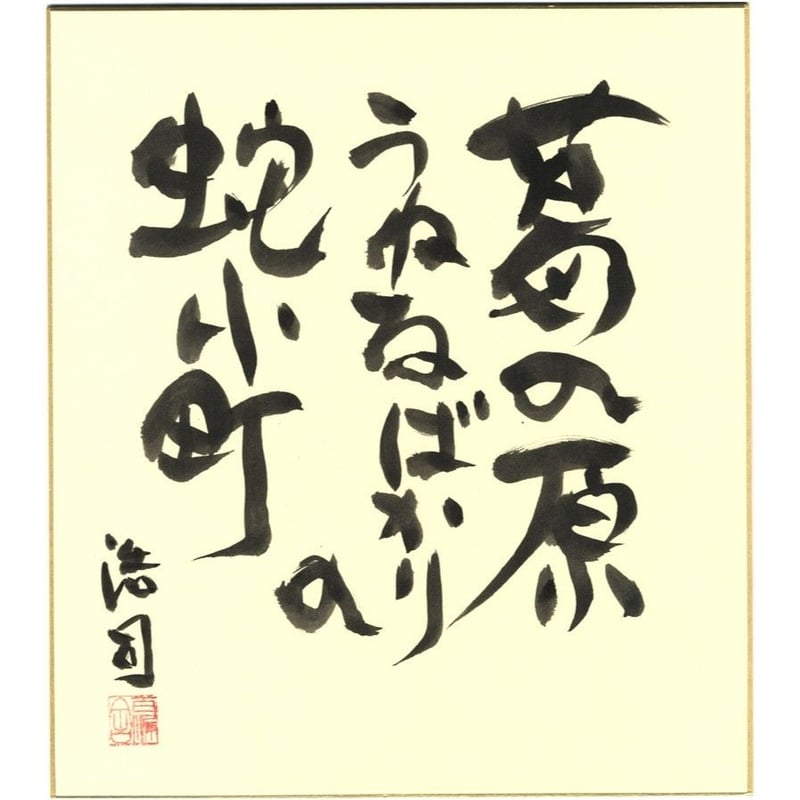 葛の原
うねるばかり
の
蛇小町
浩司